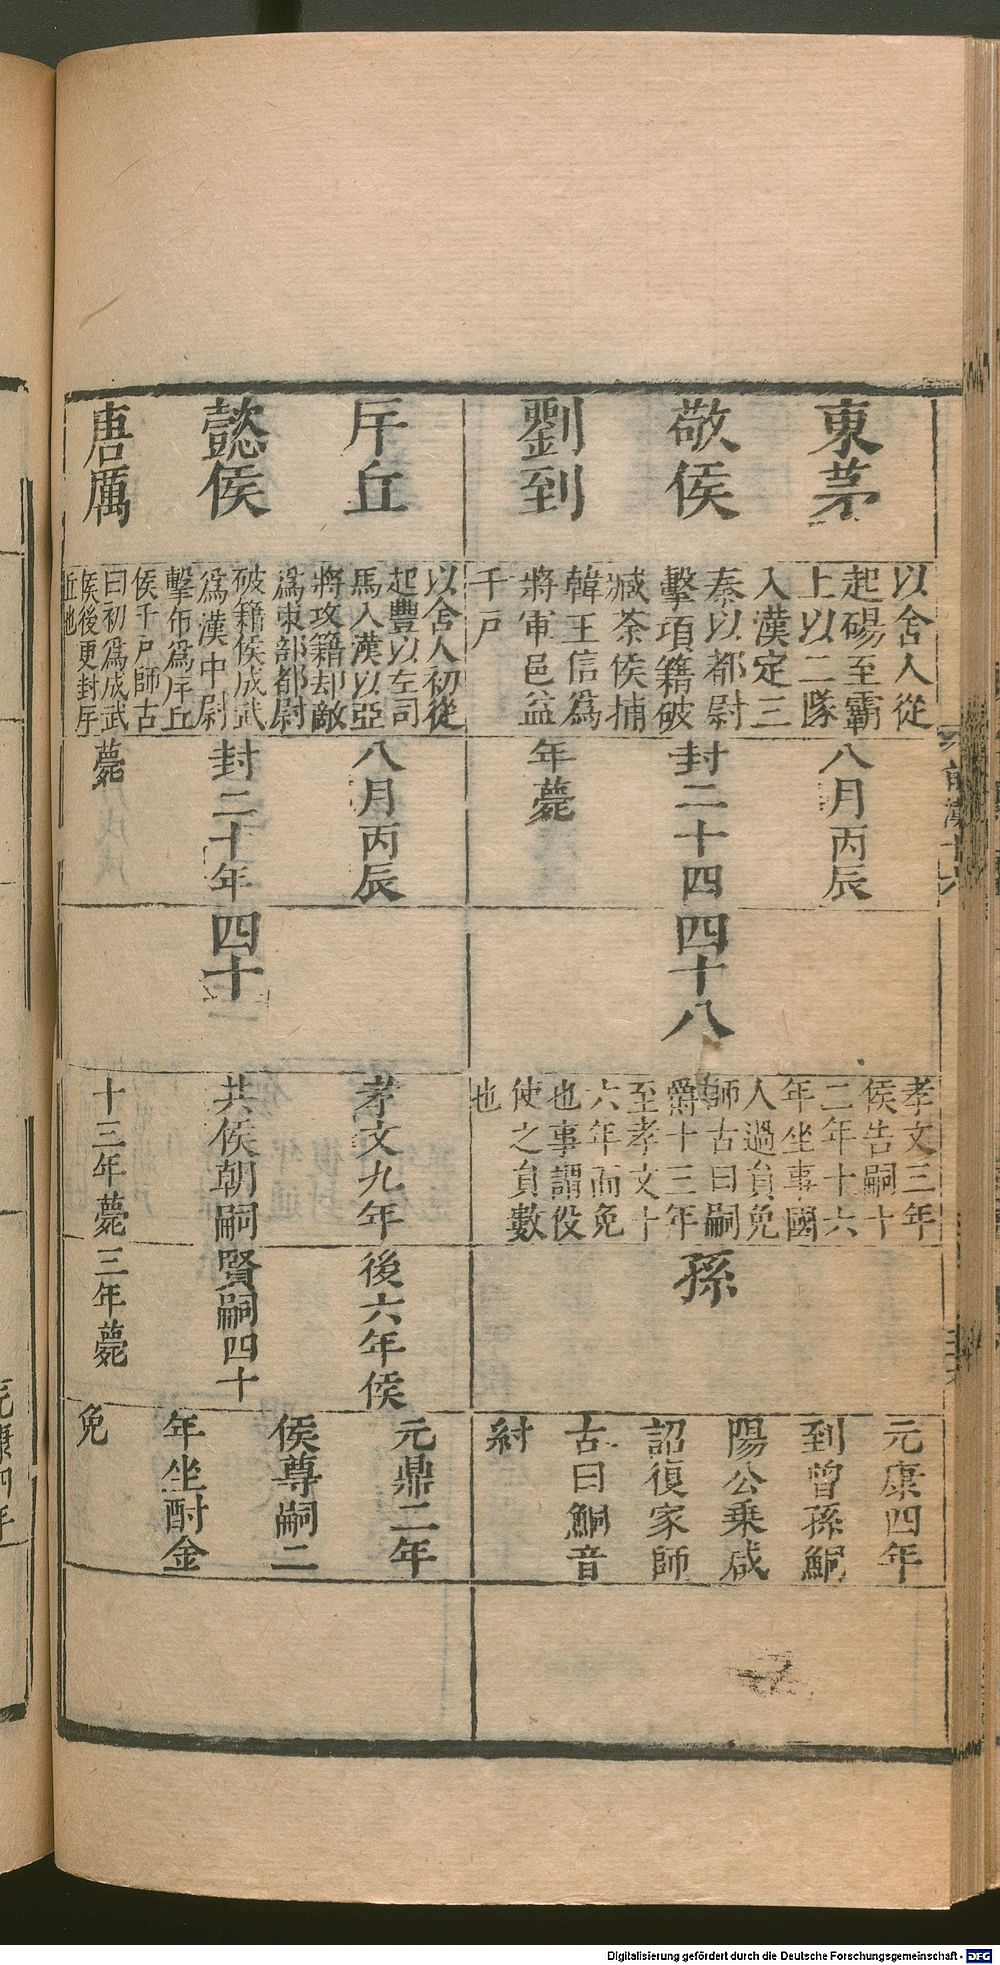 東茅
敬侯
劉到
以舍人從
起碭至霸
上以二隊
入漢定三
秦以都尉
擊項籍破
臧荼侯捕
韓王信爲
將軍邑益
千戶
八月丙辰
封二十四
年薨
四十八
孝文三年
侯告嗣十
二年十六
年坐事國
人過員免
師古曰嗣
爵十三年
至孝文十
六年而免
也事謂役
使之員數
也
孫
元康四年
到曾孫鮦
陽公乗咸
詔復家師
古曰鮦音
紂
斥丘
懿侯
唐厲
以舍人初從
起豐以左司
馬入漢以亞
將攻籍却敵
爲東部都尉
破籍侯成武
爲漢中尉
擊布爲斥丘
侯千戶師古
曰初爲成武
侯後更封斥
丘也
八月丙辰
封二十年
薨
四十
孝文九年
共侯朝嗣
十三年薨
後六年侯
賢嗣四十
三年薨
元鼎二年
侯尊嗣二
年坐酎金
免
Digitalisierung gefördert durch die Deutsche Forschungsgemeinschaft - DFG